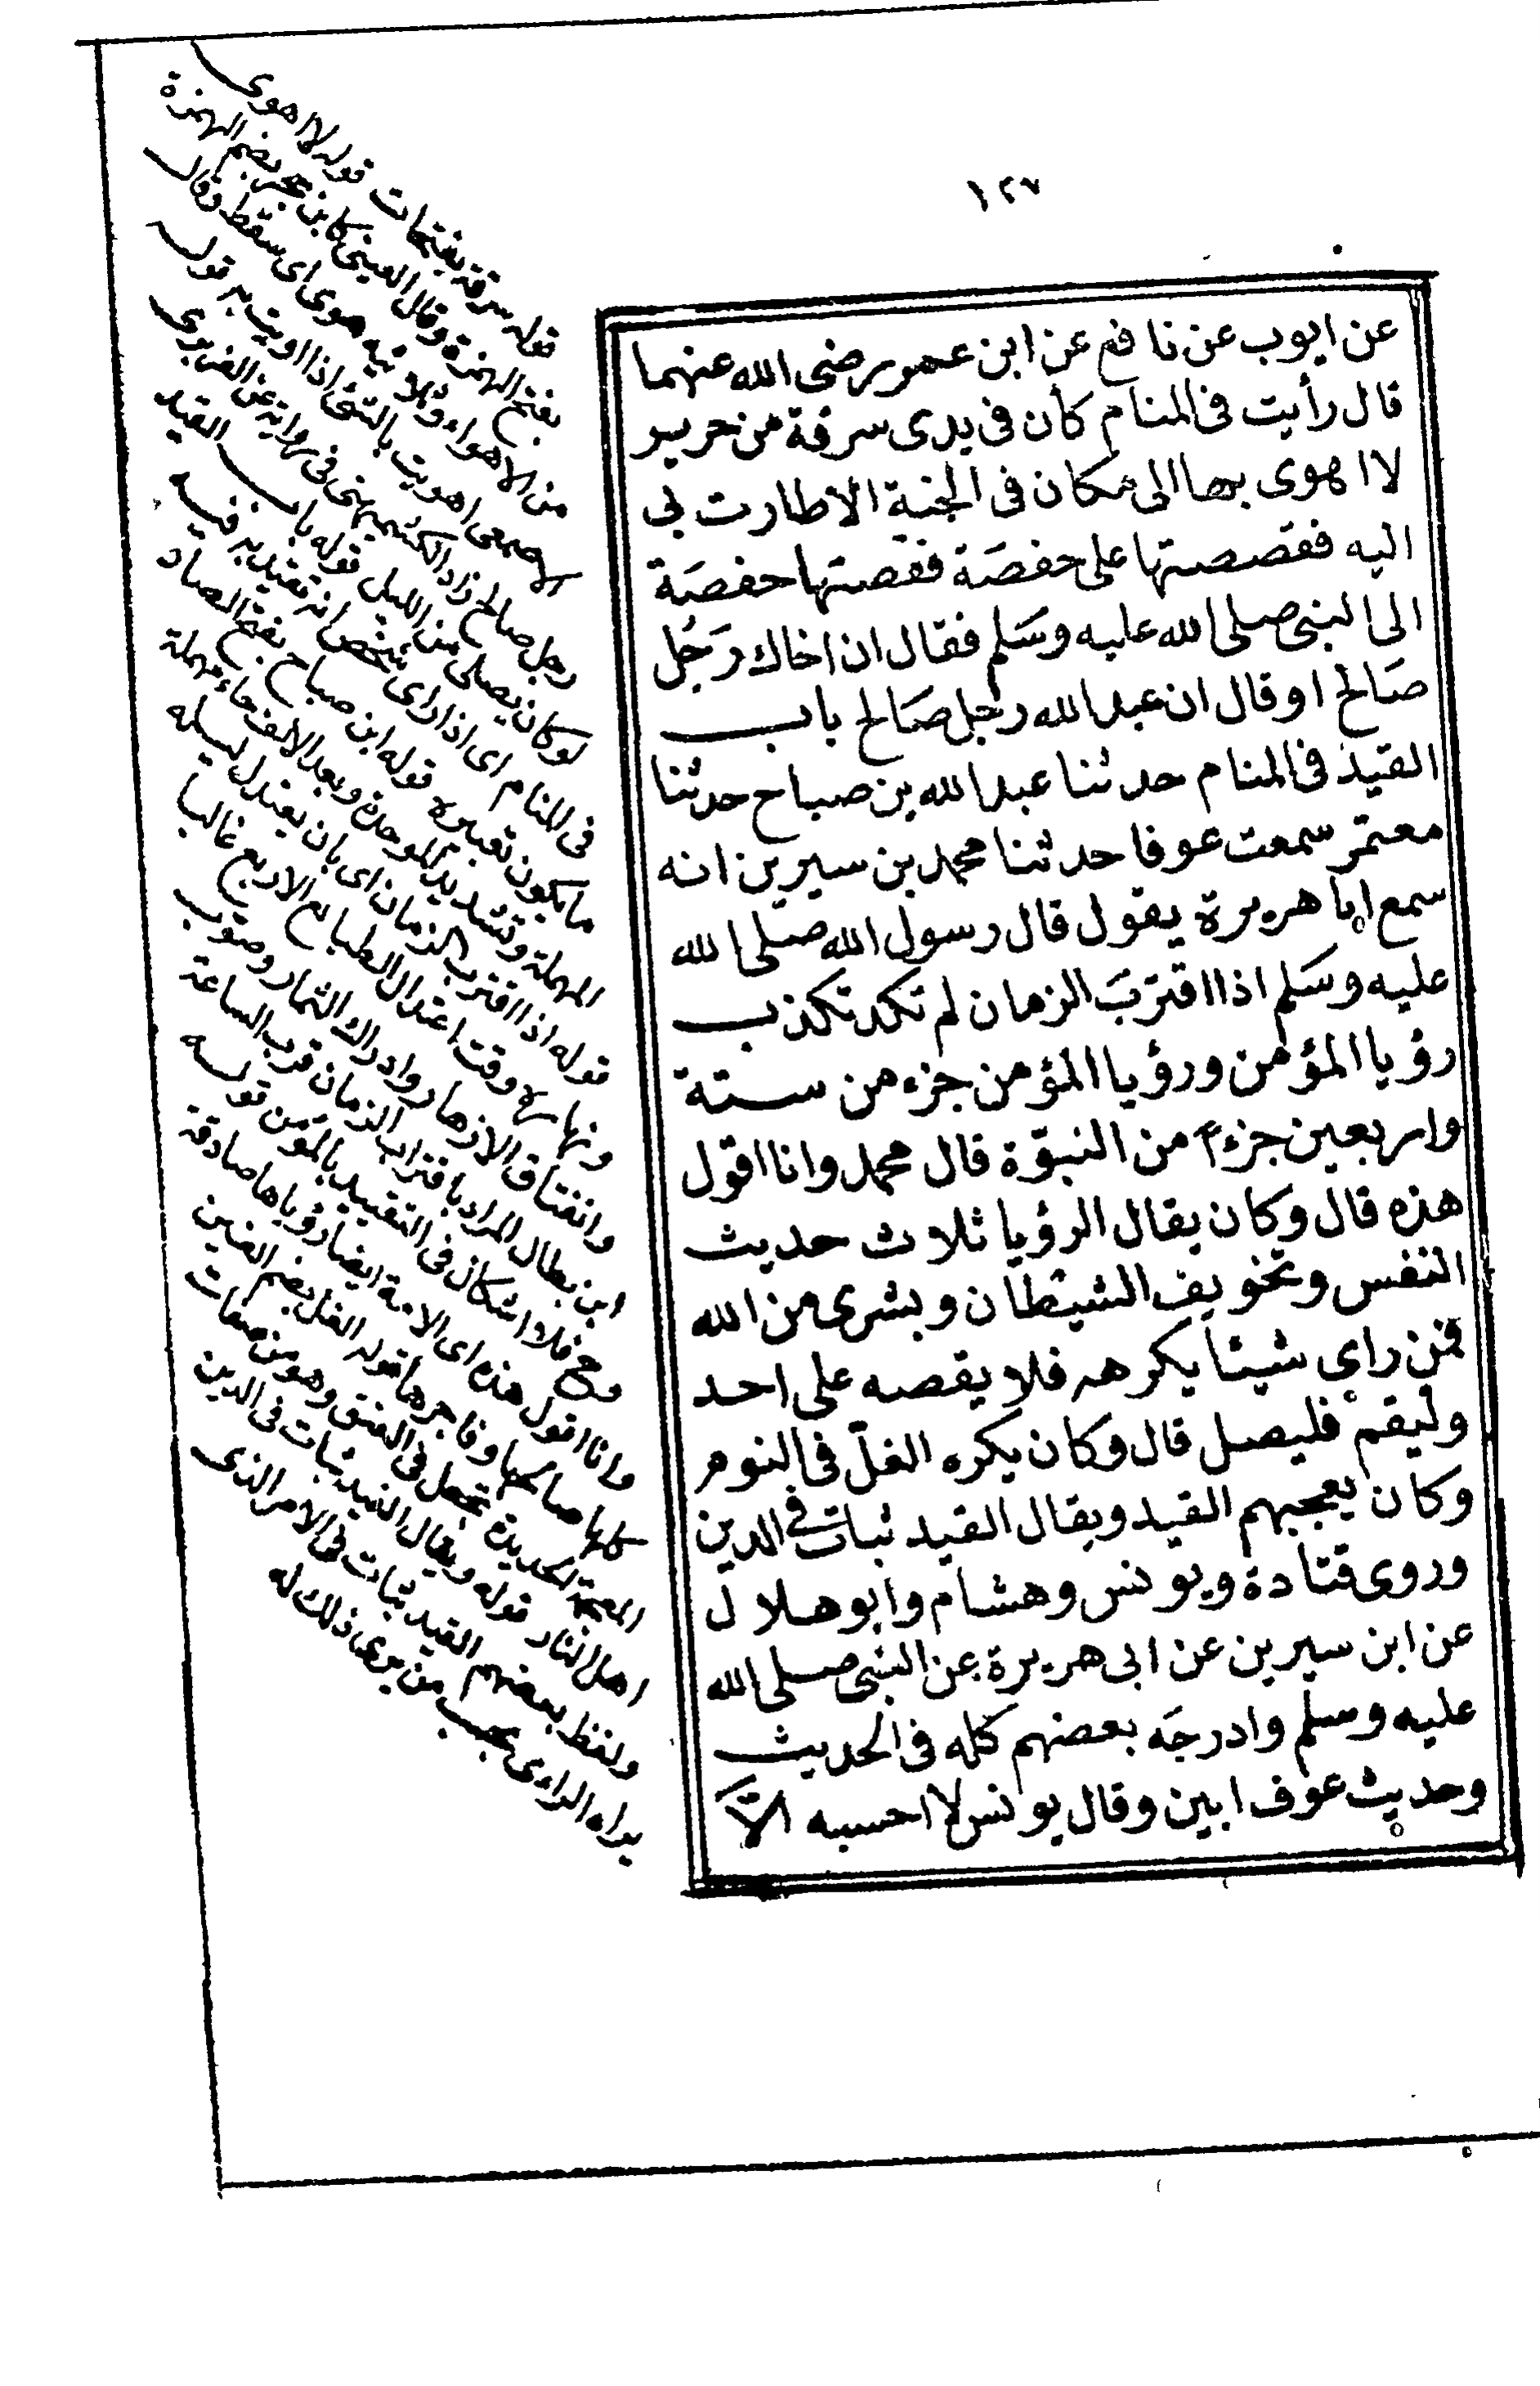 ١٢٧
عن ايوب عن نافع عن ابن عمر رضى الله عنهما
قال رأيت فى المنام كأن فى يدى سرقة من حرير
لا اهوى بها الى مكان فى الجنة الا طارت بى
اليه فقصصتها على حفصة فقصتها حفصة
الى النبى صلى الله عليه وسلم فقال ان اخاك رجل
صالح او قال ان عبد الله رجل صالح باب
القيد فى المنام حدثنا عبد الله بن صباح حدثنا
معتمر سمعت عوفا حدثنا محمد بن سيرين انه
سمع ابا هريرة يقول قال رسول الله صلى الله
عليه وسلم اذا اقترب الزمان لم تكد تكذب
رؤيا المؤمن ورؤيا المؤمن جزء من ستة
واربعين جزءا من النبوّة قال محمد وانا اقول
هذه قال وكان يقال الرؤيا ثلاث حديث
النفس وتخويف الشيطان وبشرى من الله
فمن راى شيئا يكرهه فلا يقصه على احد
وليقم فليصل قال وكان يكره الغلّ فى النوم
وكان يعجبهم القيد ويقال القيد ثبات فى الدين
وروى قتادة ويونس وهشام وابو هلال
عن ابن سيرين عن ابى هريرة عن النبى صلى الله
عليه وسلم وادرجه بعضهم كله فى الحديث
وحديث عوف ابين وقال يونس لا احسبه الاّ
قوله سرقة بفتحات قوله لا اهوى
بفتح الهمزة وقال العينى كابن حجر بضم الهمزة
من الاهواء وثلاثيه هوى اى سقط وقال
الاصمعى اهويت بالشئ اذا اوميت به قوله
رجل صالح زاد الكشميهنى فى روايته عن الفربرى
لو كان يصلى من الليل قوله باب القيد
فى المنام اى اذا راى شخص انه تقيد به فيه
ما يكون تعبيره قوله ابن صباح بفتح الصاد
المهملة وتشديد الموحدة وبعد الالف حاء مهملة
قوله اذا اقترب الزمان اى بان يعتدل ليله
ونهاره وقت اعتدال الطبائع الاربع غالبا
وانفتاق الازهار وادراك الثمار وصوّب
ابن بطال المراد باقتراب الزمان قرب الساعة
وح فلا اشكال فى التقييد بالمؤمن قوله
وانا اقول هذه اى الامة ايضا رؤياها صادقة
كلها صالحها وفاجرها قوله الغل بضم الغين
المعجمة الحديدة تجعل فى العنق وهو من صفات
اهل النار قوله ويقال القيد ثبات فى الدين
ولفظ بعضهم القيد ثبات فى الامر الذى
يراه الراءى بحسب من يرى ذلك له